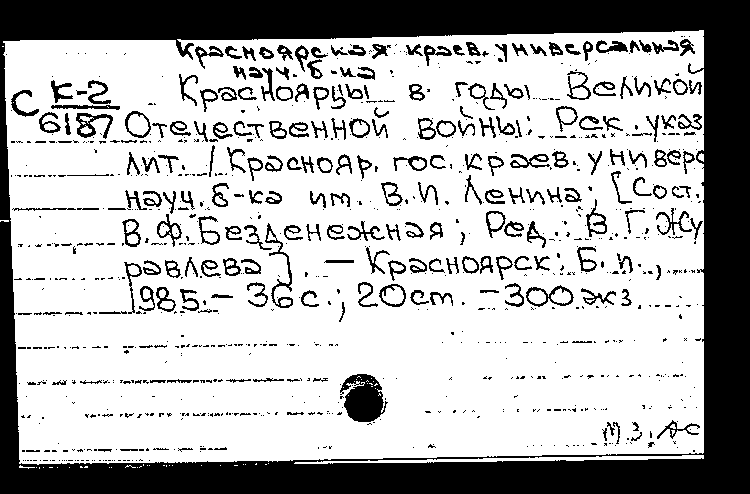 Красноярская краев. универсальная
науч. б-ка.
С К-2 Красноярцы в годы Великой
6187 Отечественной войны: Рек. указ
лит. / Краснояр. гос. краев. универс
науч. б-ка им. В.И. Ленина; [Сост.:
В.Ф. Безденежная; Ред.: В.Г. Жу
равлева]. — Красноярск: Б.и.,
1985. – 36 с.; 20 cm. – 300 экз.
МЗ, АС